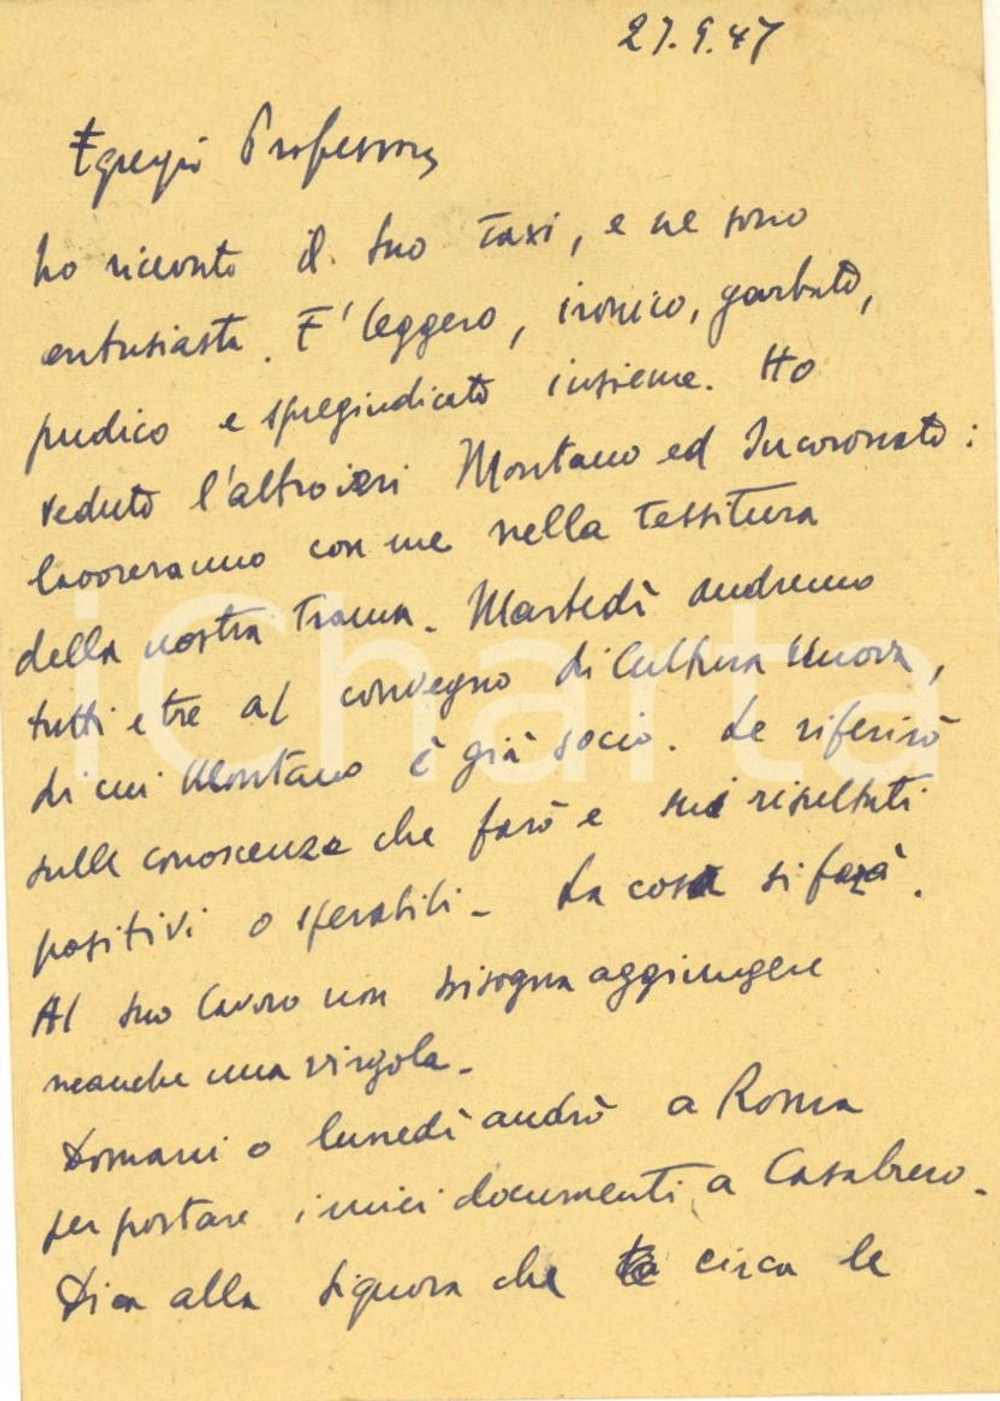 27.9.47
Egregio Professore,
ho ricevuto il suo Taxi, e ne sono
entusiasta. E' leggero, ironico, garbato,
pudico e spregiudicato insieme. Ho
veduto l'altroieri Montano ed Incoronato:
lavoreranno con me nella tessitura
della nostra trama. Martedì andremo
tutti e tre al convegno di Cultura Nuova,
di cui Montano è già socio. Le riferirò
sulle conoscenze che farò e sui risultati
positivi o sperabili - La cosa si farà.
Al suo lavoro non bisogna aggiungere
neanche una virgola -
Domani o lunedì andrò a Roma
per portare i miei documenti a Casabrero -
Dica alla Signora che circa le
iCharta